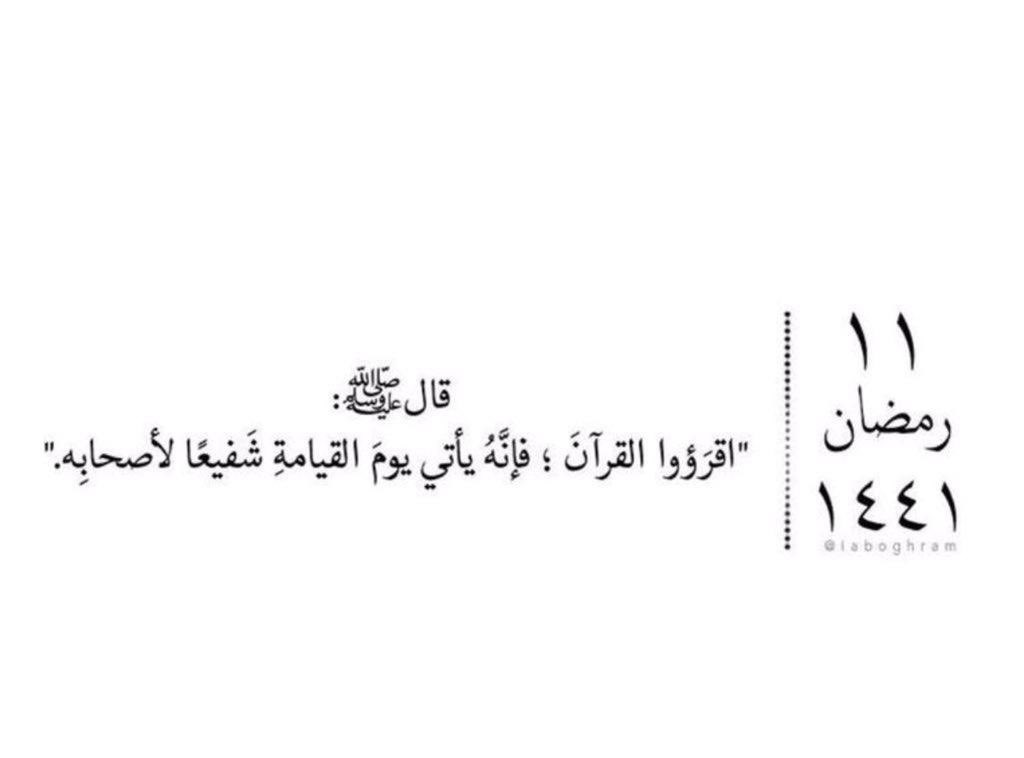 ١١
رمضان
١٤٤١
@laboghram
قال ﷺ:
"اقرَؤوا القرآنَ ؛ فإنَّهُ يأتي يومَ القيامةِ شَفيعًا لأصحابِه."